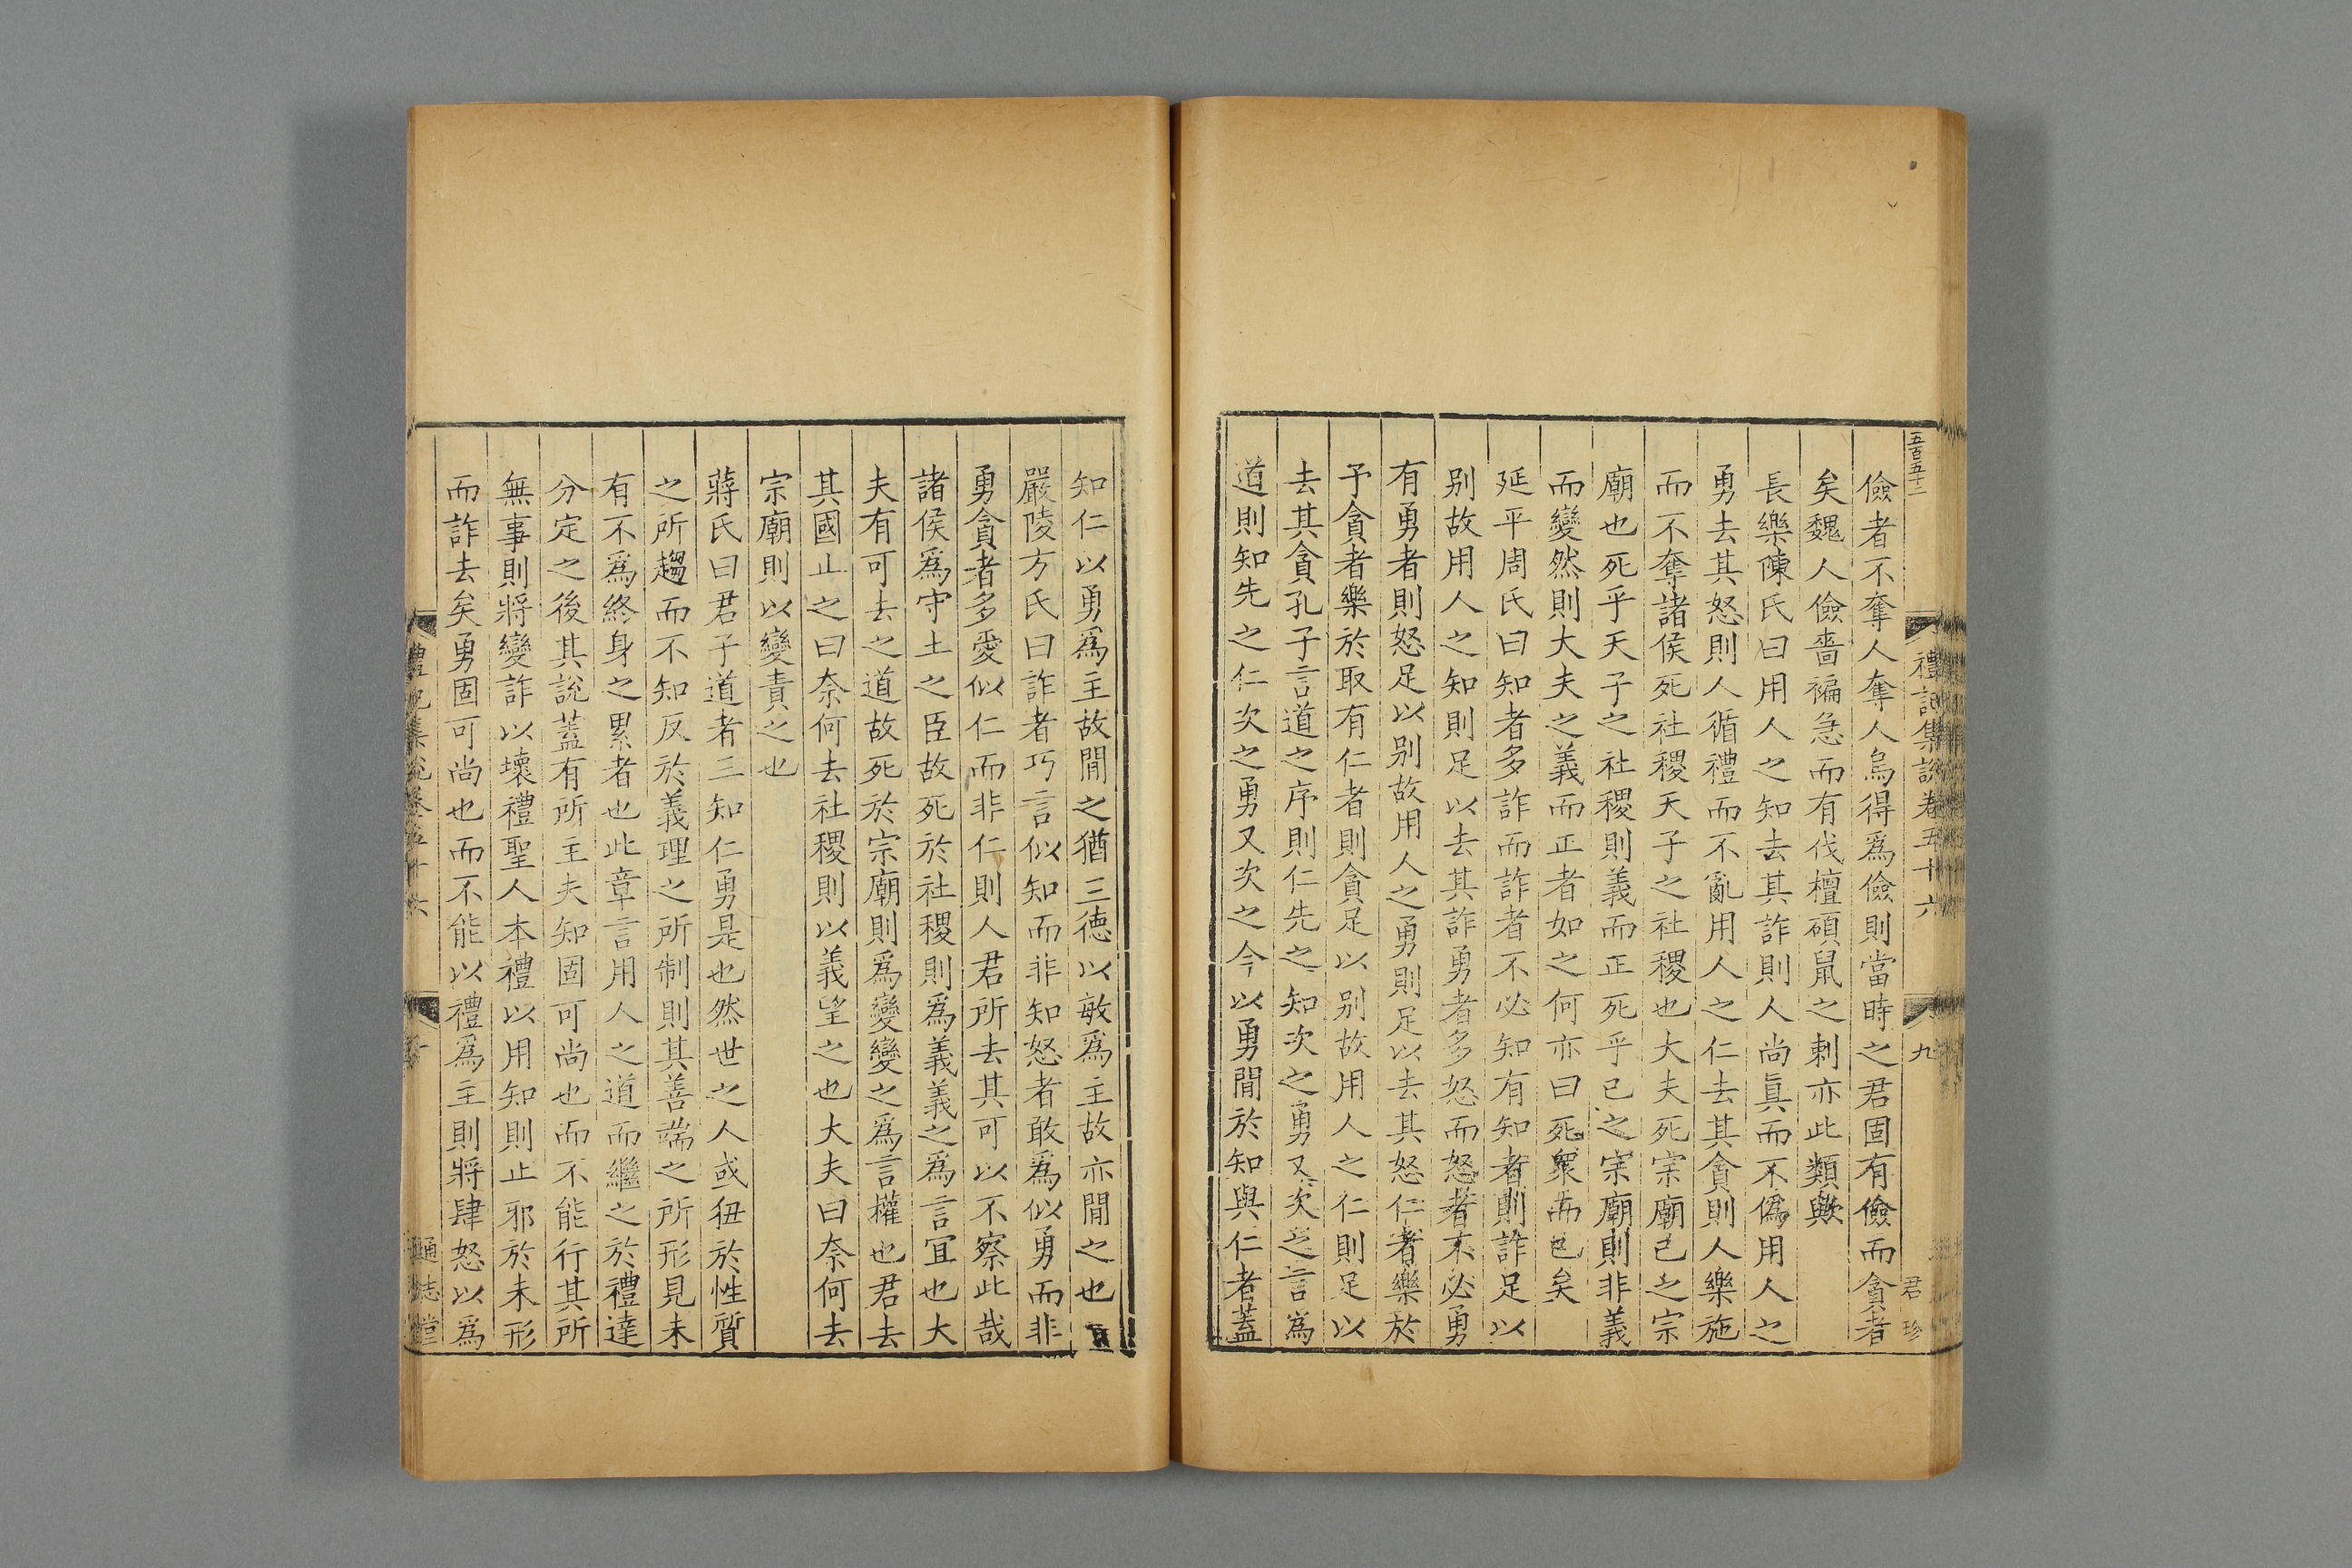 五百五十二
禮記集說卷五十六
九
君珍
儉者不奪人奪人烏得爲儉則當時之君固有儉而貪者
矣魏人儉嗇褊急而有伐檀碩鼠之刺亦此類歟
長樂陳氏曰用人之知去其詐則人尚眞而不僞用人之
勇去其怒則人循禮而不亂用人之仁去其貪則人樂施
而不奪諸侯死社稷天子之社稷也大夫死宗廟己之宗
廟也死乎天子之社稷則義而正死乎己之宗廟則非義
而變然則大夫之義而正者如之何亦曰死衆而已矣
延平周氏曰知者多詐而詐者不必知有知者則詐足以
别故用人之知則足以去其詐勇者多怒而怒者不必勇
有勇者則怒足以别故用人之勇則足以去其怒仁者樂於
予貪者樂於取有仁者則貪足以别故用人之仁則足以
去其貪孔子言道之序則仁先之知次之勇又次之言爲
道則知先之仁次之勇又次之今以勇間於知與仁者蓋
知仁以勇爲主故間之猶三德以敏爲主故亦間之也
嚴陵方氏曰詐者巧言似知而非知怒者敢爲似勇而非
勇貪者多愛似仁而非仁則人君所去其可以不察此哉
諸侯爲守土之臣故死於社稷則爲義義之爲言宜也大
夫有可去之道故死於宗廟則爲變變之爲言權也君去
其國止之曰奈何去社稷則以義望之也大夫曰奈何去
宗廟則以變責之也
蔣氏曰君子道者三知仁勇是也然世之人或狃於性質
之所趨而不知反於義理之所制則其善端之所形見未
有不爲終身之累者也此章言用人之道而繼之於禮達
分定之後其說蓋有所主夫知固可尚也而不能行其所
無事則將變詐以壞禮聖人本禮以用知則止邪於未形
而詐去矣勇固可尚也而不能以禮爲主則將肆怒以爲
禮記集說卷五十六
十
通志堂